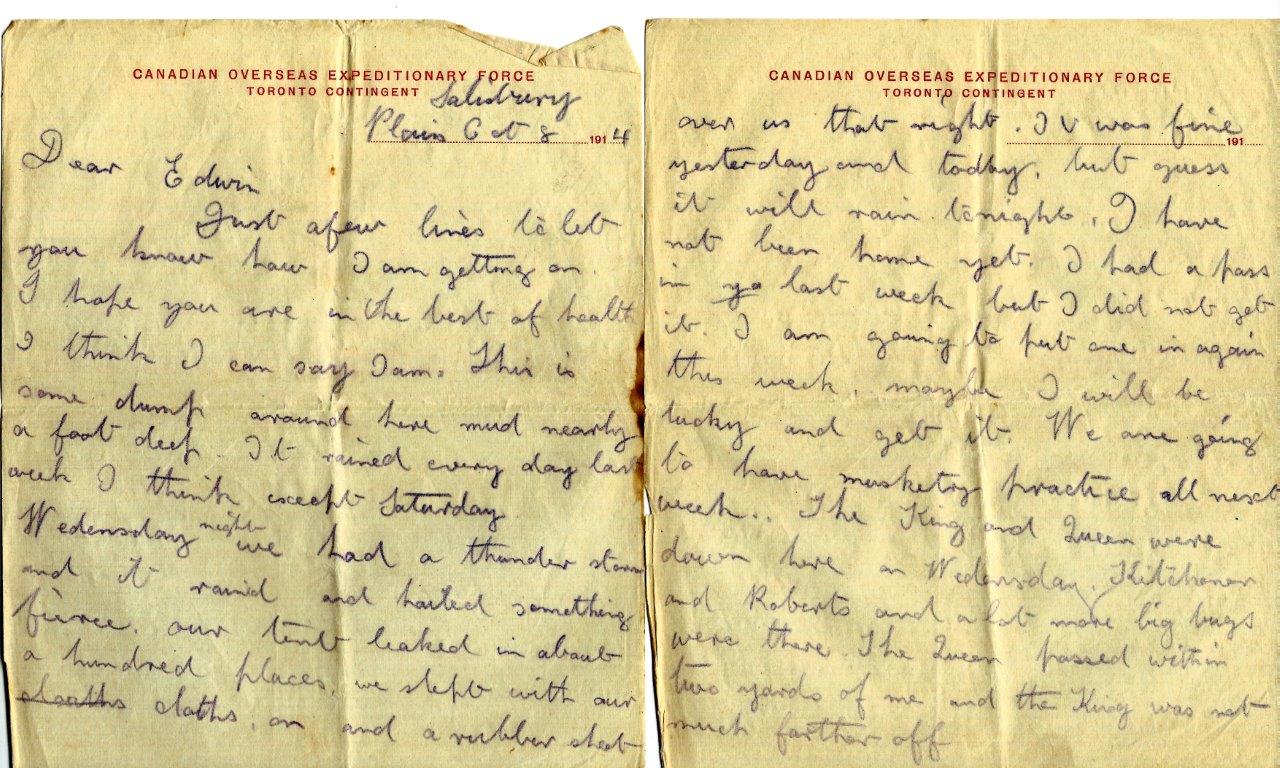 CANADIAN OVERSEAS EXPEDITIONARY FORCE
TORONTO CONTINGENT
Salisbury
Plain Oct 8 1914
Dear Edwin
Just a few lines to let
you know how I am getting on.
I hope you are in the best of health
I think I can say I am. This is
some dump around here mud nearly
a foot deep. It rained every day last
week I think except Saturday
Wedensday night we had a thunder storm
and it raind and hailed something
fierce. our tent leaked in about
a hundred places. we slept with our
cloths, on and a rubber sheet
CANADIAN OVERSEAS EXPEDITIONARY FORCE
TORONTO CONTINGENT
191
over us that night. It was fine
yesterday and today, but guess
it will rain tonight. I have
not been home yet. I had a pass
in last week but I did not get
it. I am going to put one in again
this week, maybe I will be
lucky and get it. We are going
to have musketry practice all next
week.. The King and Queen were
down here on Wedensday. Kitchener
and Roberts and a lot more big bugs
were there. The Queen passed within
two yards of me and the King was not
much farther off